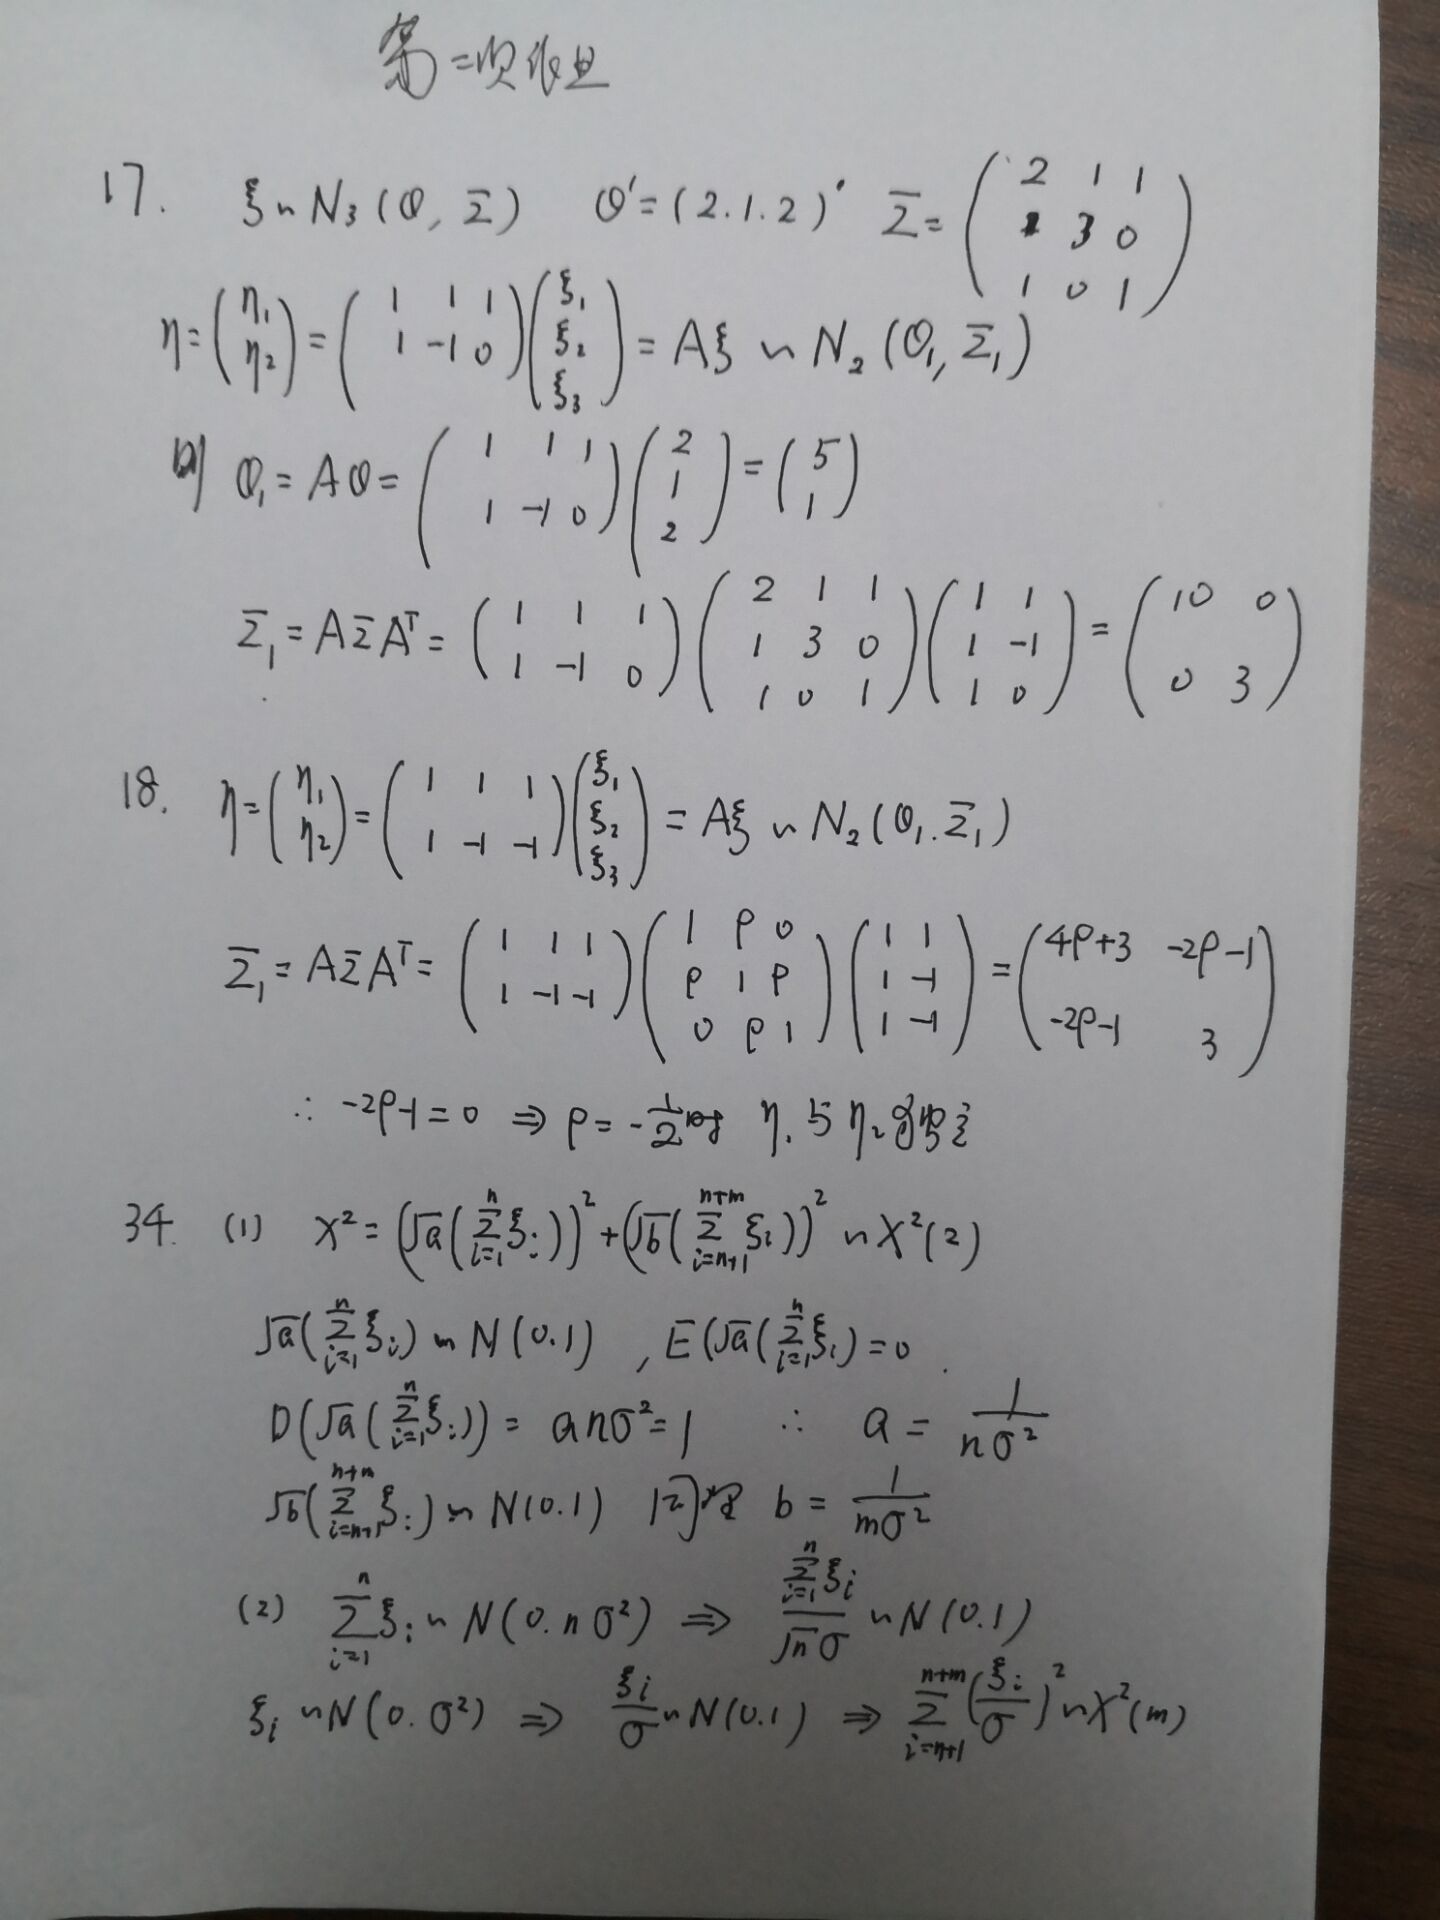 第二次作业
17. ξ ~ N₃(θ, Σ) θ' = (2.1.2)' Σ = ( 2 1 1 ; 1 3 0 ; 1 0 1 )
η = ( η₁ ; η₂ ) = ( 1 1 1 ; 1 -1 0 ) ( ξ₁ ; ξ₂ ; ξ₃ ) = Aξ ~ N₂(θ₁, Σ₁)
则 θ₁ = Aθ = ( 1 1 1 ; 1 -1 0 ) ( 2 ; 1 ; 2 ) = ( 5 ; 1 )
Σ₁ = AΣAᵀ = ( 1 1 1 ; 1 -1 0 ) ( 2 1 1 ; 1 3 0 ; 1 0 1 ) ( 1 1 ; 1 -1 ; 1 0 ) = ( 10 0 ; 0 3 )
18. η = ( η₁ ; η₂ ) = ( 1 1 1 ; 1 -1 -1 ) ( ξ₁ ; ξ₂ ; ξ₃ ) = Aξ ~ N₂(θ₁. Σ₁)
Σ₁ = AΣAᵀ = ( 1 1 1 ; 1 -1 -1 ) ( 1 ρ 0 ; ρ 1 ρ ; 0 ρ 1 ) ( 1 1 ; 1 -1 ; 1 -1 ) = ( 4ρ+3 -2ρ-1 ; -2ρ-1 3 )
∴ -2ρ-1 = 0 ⇒ ρ = -1/2 时 η₁与η₂独立
34. (1) X² = (√a(∑ᵢ₌₁ⁿ ξᵢ))² + (√b(∑ᵢ₌ₙ₊₁ⁿ⁺ᵐ ξᵢ))² ~ X²(2)
√a(∑ᵢ₌₁ⁿ ξᵢ) ~ N(0.1) , E(√a(∑ᵢ₌₁ⁿ ξᵢ) = 0 .
D(√a(∑ᵢ₌₁ⁿ ξᵢ)) = anσ² = 1 ∴ a = 1/(nσ²)
√b(∑ᵢ₌ₙ₊₁ⁿ⁺ᵐ ξᵢ) ~ N(0.1) 同理 b = 1/(mσ²)
(2) ∑ᵢ₌₁ⁿ ξᵢ ~ N(0.nσ²) ⇒ (∑ᵢ₌₁ⁿ ξᵢ)/(√n σ) ~ N(0.1)
ξᵢ ~ N(0.σ²) ⇒ ξᵢ/σ ~ N(0.1) ⇒ ∑ᵢ₌ₙ₊₁ⁿ⁺ᵐ (ξᵢ/σ)² ~ X²(m)